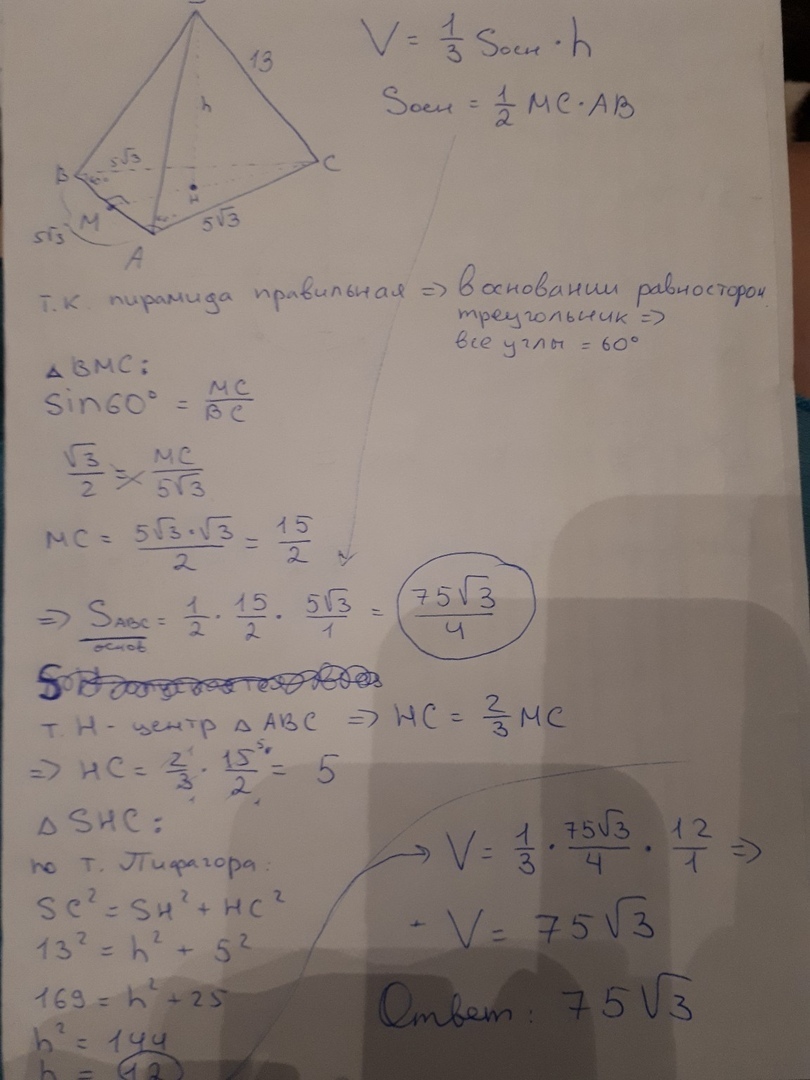 V = 1/3 Sосн · h
Sосн = 1/2 MC · AB
13
h
5√3
B
C
H
M
5√3
5√3
A
т.к. пирамида правильная => в основании равносторон.
треугольник =>
все углы = 60°
△ BMC:
sin60° = MC/BC
√3/2 = MC/5√3
MC = 5√3·√3/2 = 15/2
=> SABC = 1/2 · 15/2 · 5√3/1 = 75√3/4
основ
т. H - центр △ ABC => HC = 2/3 MC
=> HC = 2/3 · 15/2 = 5
△ SHC:
по т. Пифагора:
SC² = SH² + HC²
13² = h² + 5²
169 = h² + 25
h² = 144
h = 12
V = 1/3 · 75√3/4 · 12/1 =>
V = 75√3
Ответ: 75√3